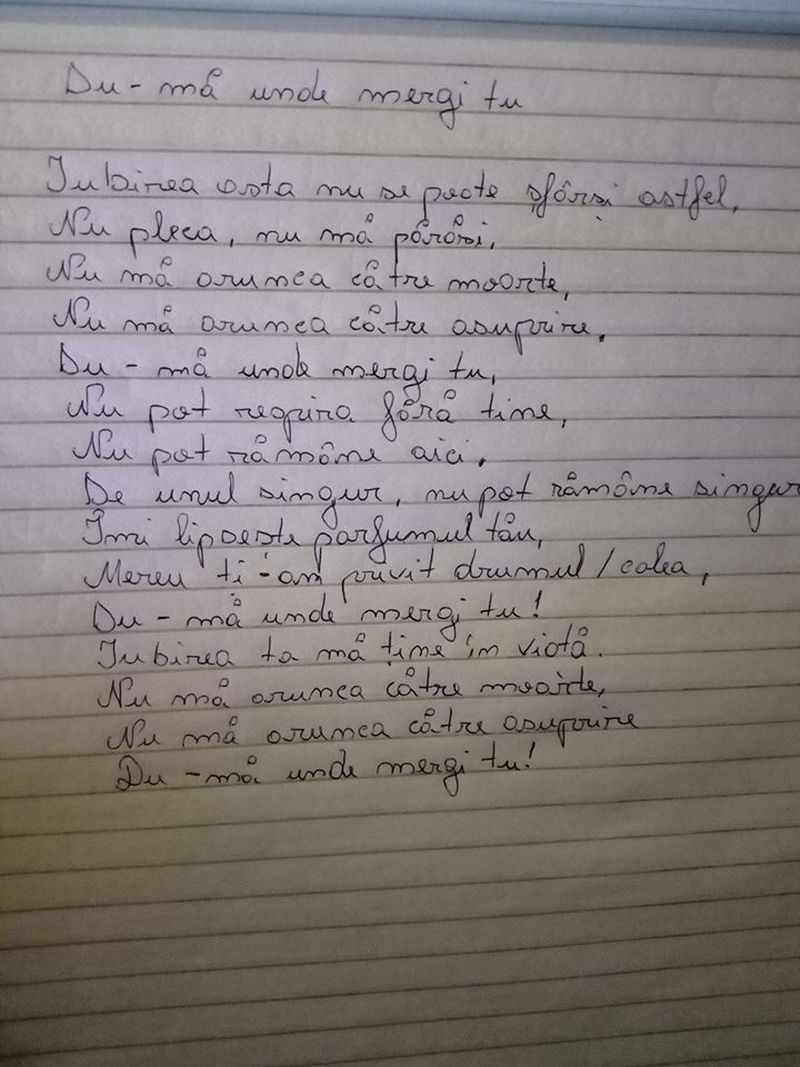 Du-mă unde mergi tu
Iubirea asta nu se poate sfârși astfel,
Nu pleca, nu mă părăsi,
Nu mă arunca către moarte,
Nu mă arunca către asuprire.
Du-mă unde mergi tu,
Nu pot respira fără tine,
Nu pot rămâne aici.
De unul singur, nu pot rămâne singur
Îmi lipsește parfumul tău,
Mereu ți-am privit drumul/calea,
Du-mă unde mergi tu!
Iubirea ta mă ține în viață.
Nu mă arunca către moarte,
Nu mă arunca către asuprire
Du-mă unde mergi tu!